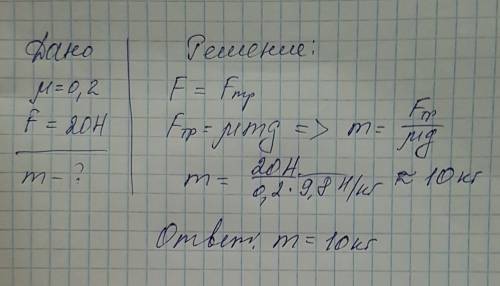 Дано
μ=0,2
F = 20Н
m - ?
Решение:
F = Fтр
Fтр = μmg => m = Fтр/μg
m = 20Н/0,2·9,8 Н/кг ≈ 10кг
Ответ: m = 10кг